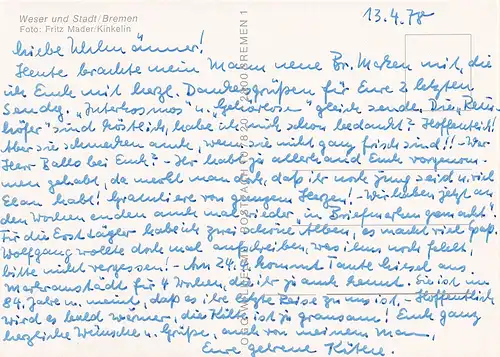 Weser und Stadt/Bremen
Foto: Fritz Mader/Kinkelin
13.4.78
Liebe
Heute brachte mein Mann neue Br. Marken mit, die
ich Euch mit herzl. Dankesgrüßen für Eure 2 letzten
Sendg. „Interkosmos" u. gleich sende. Die
sind köstlich, habe ich mich schon bedankt? Hoffentlich!
Aber sie schmecken auch, wenn sie nicht ganz frisch sind!! – War
Herr bei Euch? – Ihr habt ja allerhand Euch vorgenom-
men gehabt, da merkt man doch, daß ihr noch jung seid u. viel
Elan habt! Gratuliere von ganzem Herzen! – Wir haben jetzt an
den Wochenenden auch mal wieder „in Briefmarken gemacht".
Für die habe ich zwei schöne Alben, es macht viel Spaß.
Wolfgang wollte doch mal aufschreiben, was ihm noch fehlt,
bitte nicht vergessen! – Am 24.4. kommt Tante Liesel aus
Markranstädt für 4 Wochen, die ihr ja auch kennt. Sie ist im
84. Jahr u. meint, daß es ihre letzte Reise zu uns ist. – Hoffentlich
wird es bald wärmer, die Kälte ist ja grausam! Euch ganz
herzliche Wünsche u. Grüße, auch von meinem Mann,
Eure getreue
POSTFACH 107820 · 2800 BREMEN 1